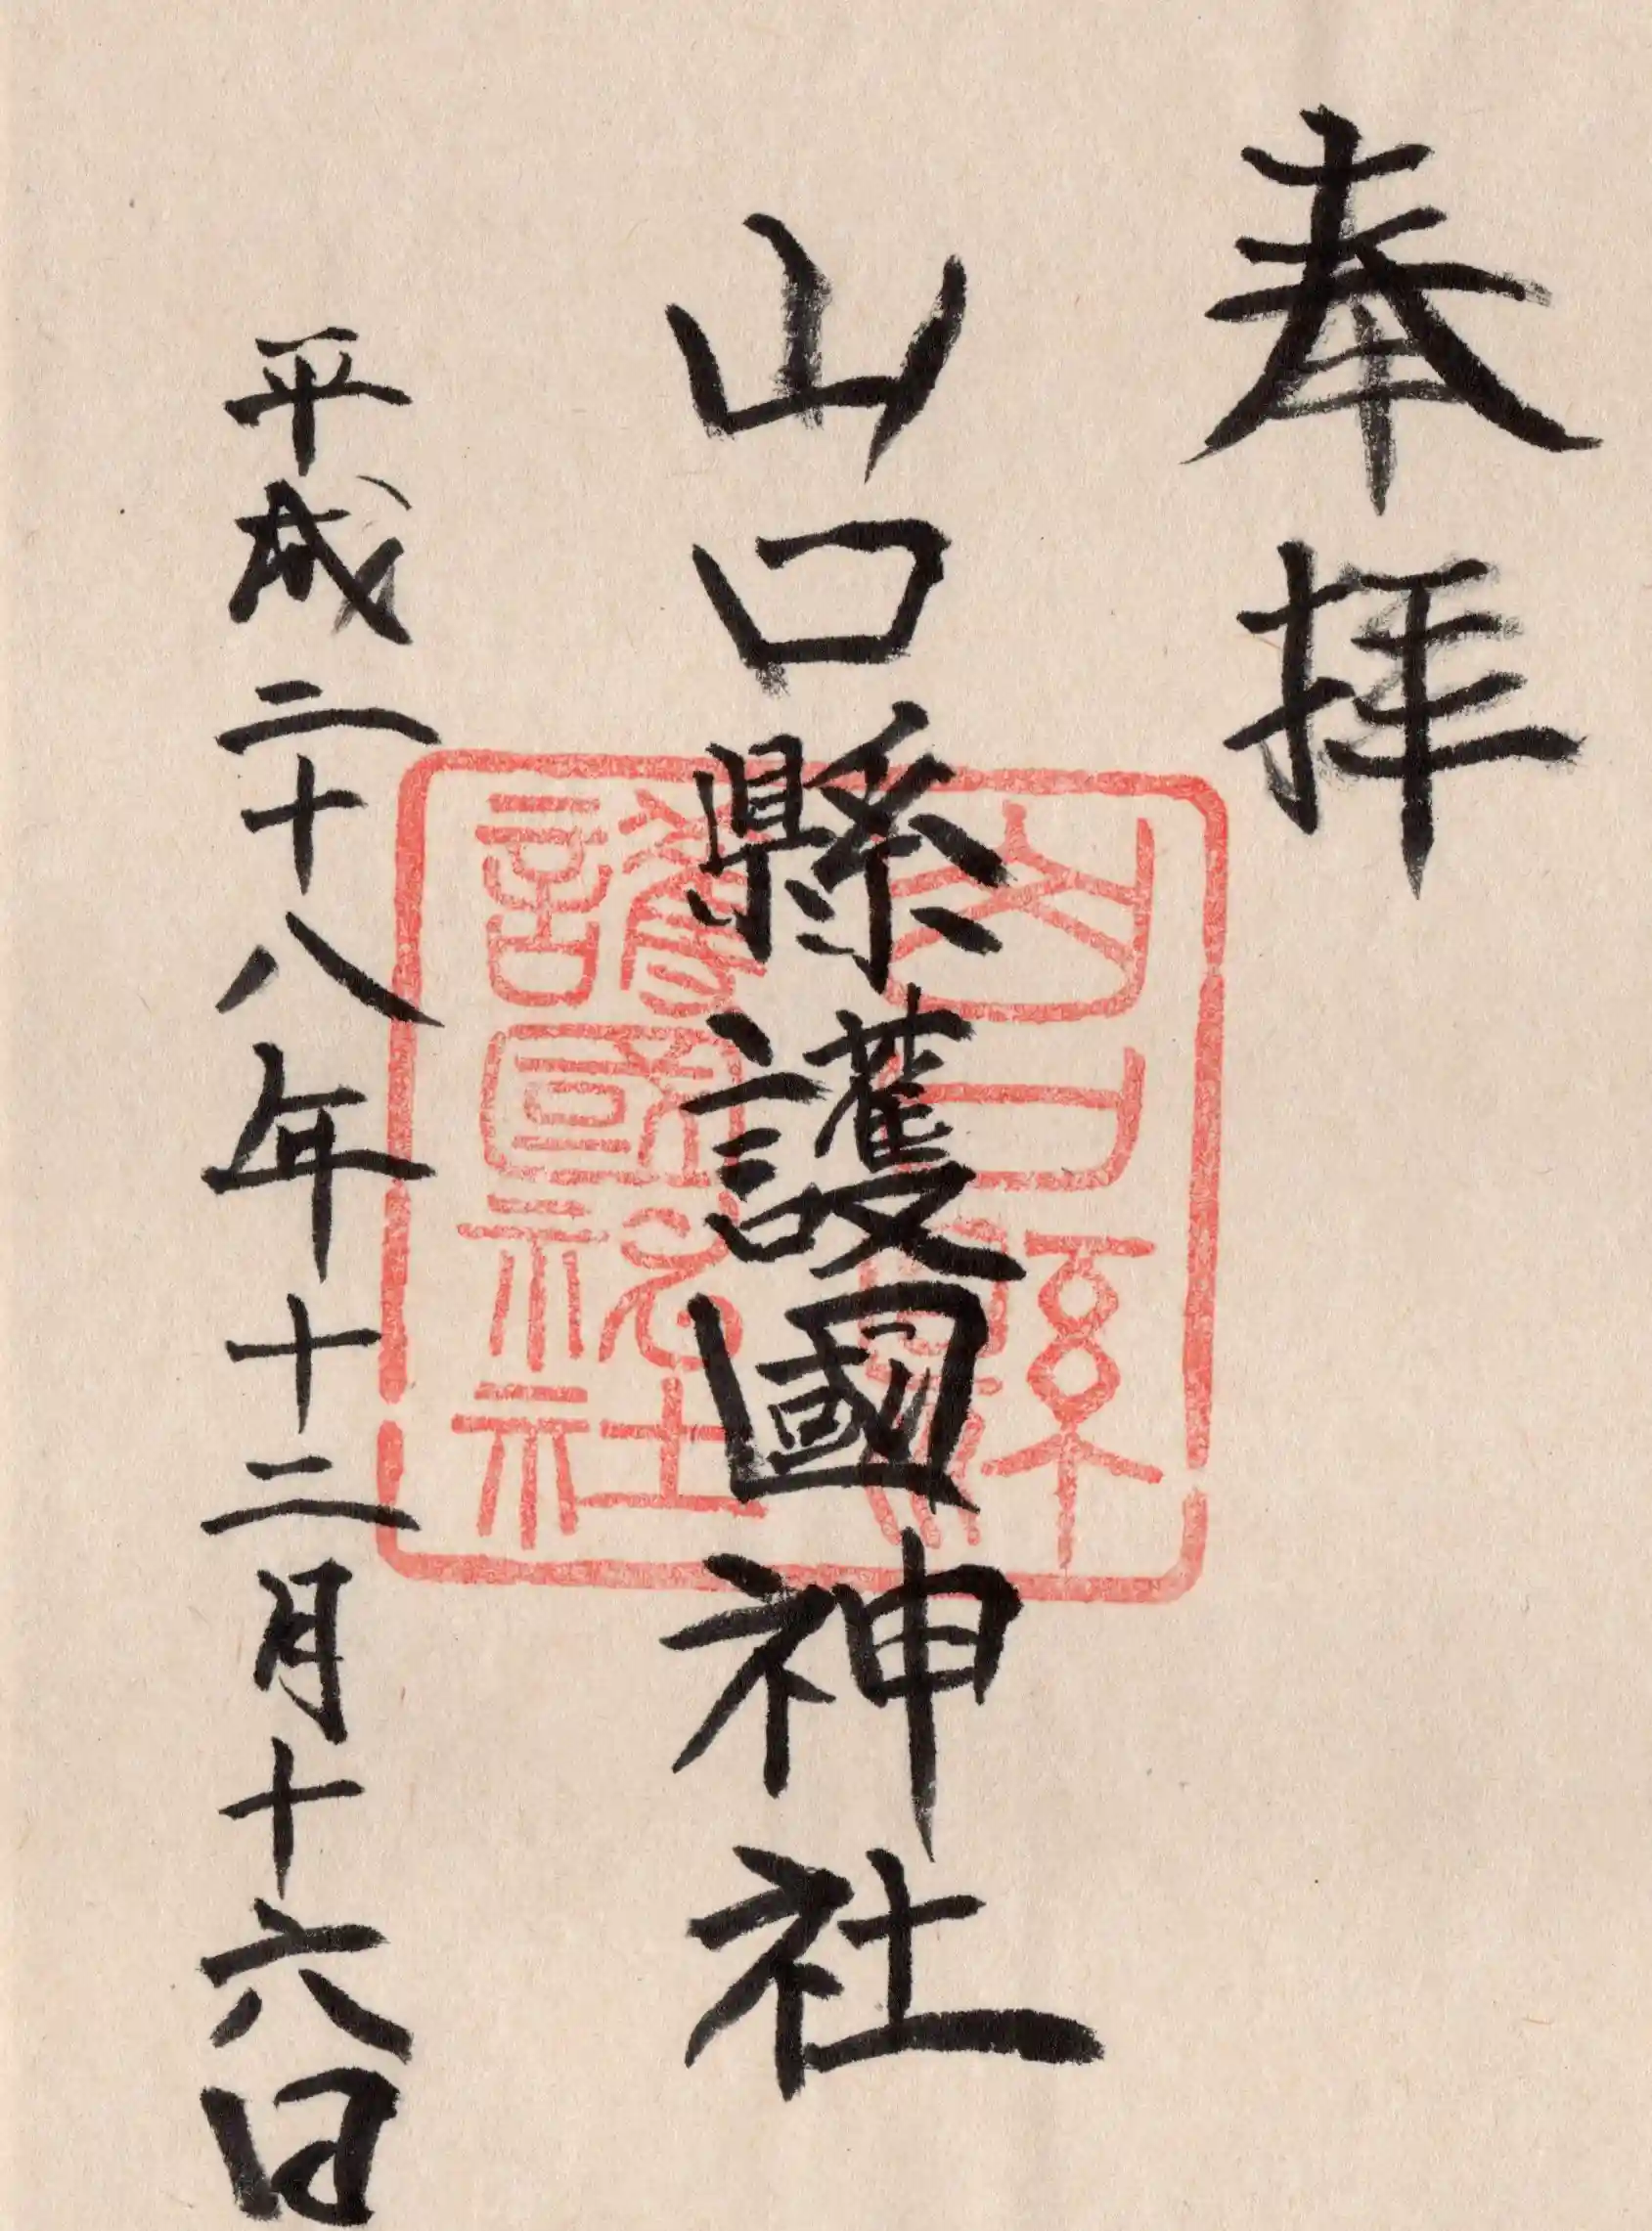 奉拝
山口縣護國神社
山口縣
護國神社
平成二十八年十二月十六日